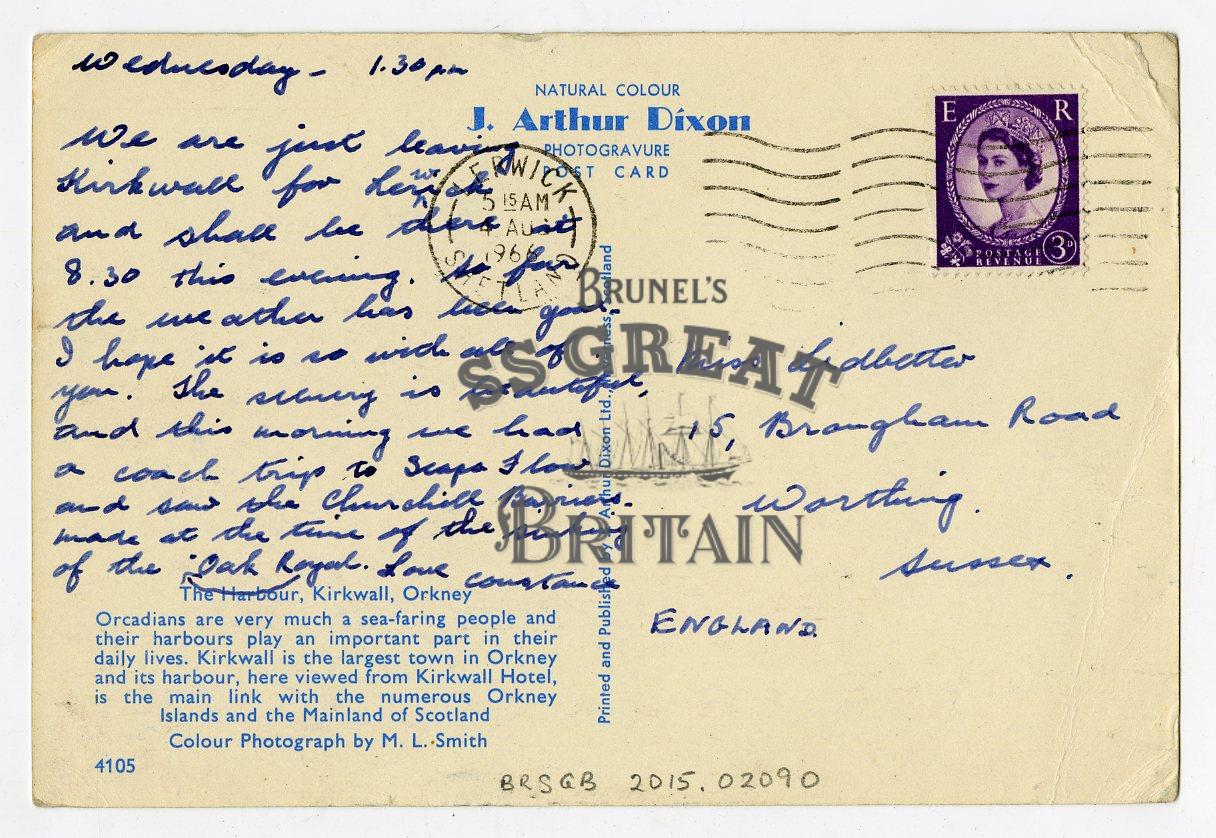 Wednesday - 1.30 pm
We are just leaving
Kirkwall for Lerwick
and shall be there at
8.30 this evening. So far
the weather has been good.
I hope it is so with all of
you. The scenery is beautiful,
and this morning we had
a coach trip to Scapa Flow
and saw the Churchill Barriers
made at the time of the sinking
of the "Oak Royal. Love Constance
NATURAL COLOUR
J. Arthur Dixon
PHOTOGRAVURE
POST CARD
LERWICK
5 15 AM
4 AUG
1966
SHETLAND
E R
POSTAGE
REVENUE
3D
BRUNEL'S
SS GREAT
BRITAIN
Miss Ledbetter
15, Brougham Road
Worthing.
Sussex.
ENGLAND.
Printed and Published by J. Arthur Dixon Ltd., Inverness, Scotland
The Harbour, Kirkwall, Orkney
Orcadians are very much a sea-faring people and
their harbours play an important part in their
daily lives. Kirkwall is the largest town in Orkney
and its harbour, here viewed from Kirkwall Hotel,
is the main link with the numerous Orkney
Islands and the Mainland of Scotland
Colour Photograph by M. L. Smith
4105
BRSGB 2015.02090